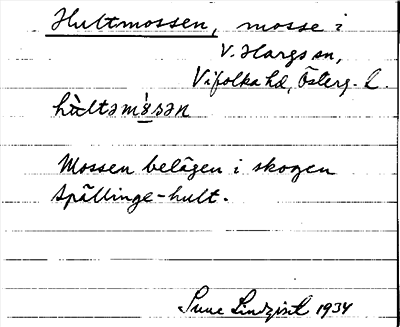 Hultmossen, mosse i
V. Hargs sn,
Vifolka hd, Österg. L.
hùltəmɔ̀sən
Mossen belägen i skogen
Spällinge-hult.
Sune Lindqvist 1934